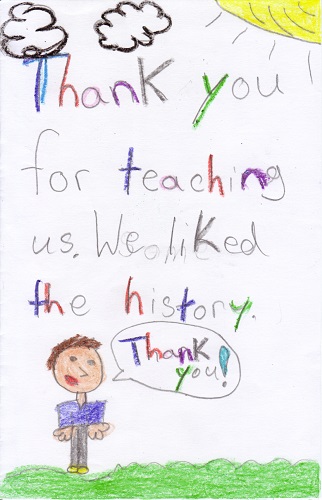 Thank you!
for teaching
us. We liked
the history.
Thank
you!